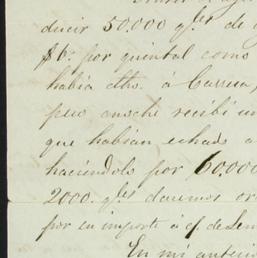 ducir 50.000 q.les de
$6. por quintal como
habia dho. á Carrera,
pero anoche recibí un
que habian echado a
haciéndolo por 60.000
2000. q.les daremos or
por su importe á cf. de Sem
En mi anterio